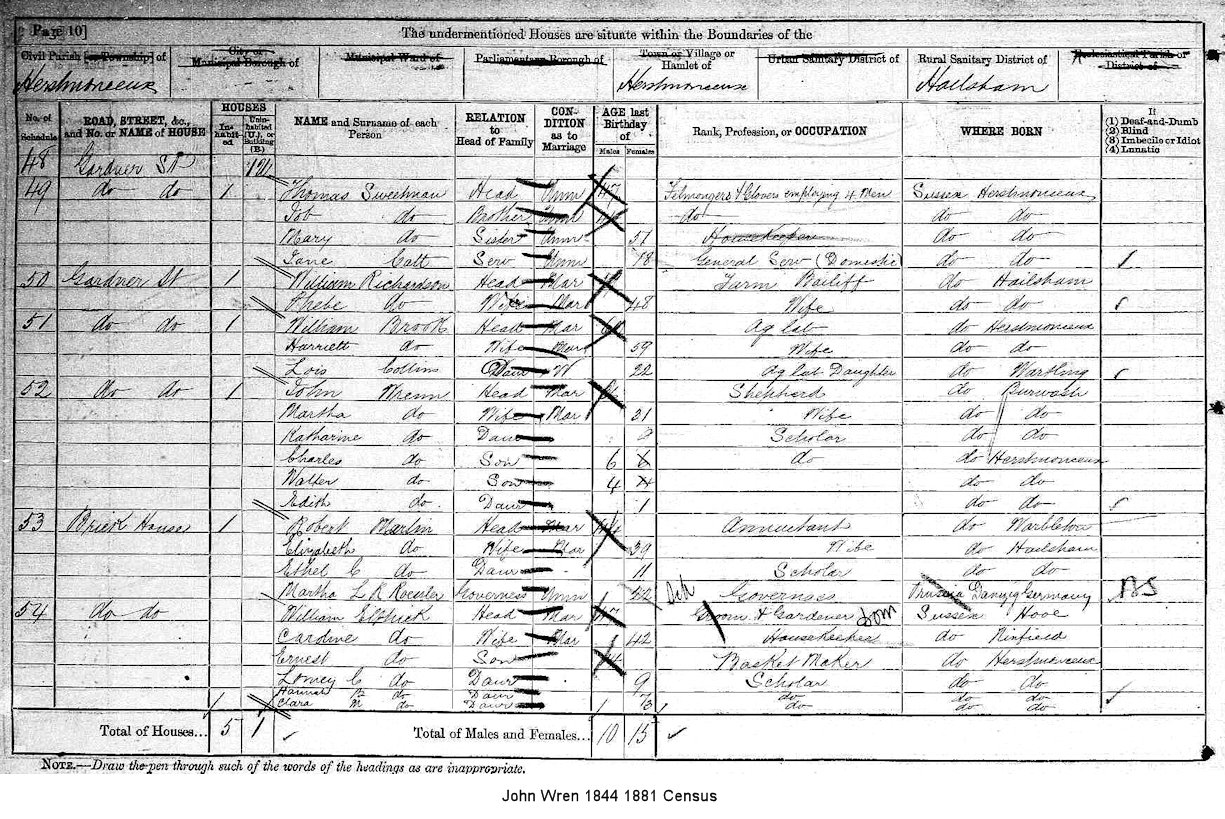 Page 10]
The undermentioned Houses are situate within the Boundaries of the
Civil Parish [or Township] of City or Municipal Borough of Municipal Ward of Parliamentary Borough of Town or Village or Hamlet of Urban Sanitary District of Rural Sanitary District of Ecclesiastical Parish or District of
Herstmonceux Herstmonceux Hailsham
No. of Schedule ROAD, STREET, &c., and No. or NAME of HOUSE HOUSES In-habit-ed Unin-habited (U.), or Building (B.) NAME and Surname of each Person RELATION to Head of Family CON-DITION as to Marriage AGE last Birthday of Males Females Rank, Profession, or OCCUPATION WHERE BORN If (1) Deaf-and-Dumb (2) Blind (3) Imbecile or Idiot (4) Lunatic
48 Gardner St
49 do do 1 Thomas Head Unm 47 Felmongers & Glovers employing 4 Men Sussex Herstmonceux
Job do Brother Unm do do do
Mary do Sister Unm 51 Housekeeper do do
Jane Catt Serv Unm 18 General Serv (Domestic) do do
50 Gardner St 1 William Richardson Head Mar Farm Bailiff do Hailsham
Phebe do Wife Mar 48 Wife do do
51 do do 1 William Brook Head Mar Ag lab do Herstmonceux
Harriett do Wife Mar 59 Wife do do
Lois Collins Daur W 22 Ag lab Daughter do Wartling
52 do do 1 John Wrenn Head Mar Shepherd do Burwash
Martha do Wife Mar 31 Wife do do
Katharine do Daur Scholar do do
Charles do Son 6 do do Herstmonceux
Walter do Son 4 do do
Edith do Daur 1 do do
53 Brick House 1 Robert Martin Head Mar Annuitant do Warbleton
Elizabeth do Wife Mar 39 Wife do Hailsham
Ethel C do Daur 11 Scholar do do
Martha L R Roesler Governess Unm 22 Governess Prussia Danzig Germany
54 do do William Elphick Head Mar Groom & Gardener Dom Sussex Hove
Caroline do Wife Mar 42 Housekeeper do Ninfield
Ernest do Son Basket Maker do Herstmonceux
C do Daur 9 Scholar do do
Hannah do Daur do do do
Clara M do Daur do do do
Total of Houses... 5 1 Total of Males and Females... 10 15
NOTE.—Draw the pen through such of the words of the headings as are inappropriate.
John Wren 1844 1881 Census